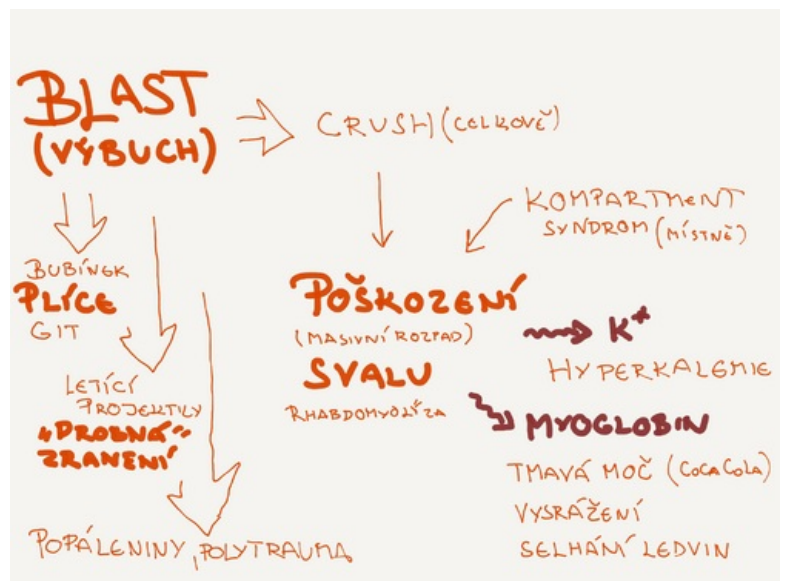 BLAST
(VÝBUCH)
CRUSH (CELKOVĚ)
KOMPARTMENT
SYNDROM (MÍSTNĚ)
BUBÍNEK
PLÍCE
GIT
LETÍCÍ
PROJEKTILY
"DROBNÁ"
ZRANENÍ
POPÁLENINY, POLYTRAUMA
POŠKOZENÍ
(MASIVNÍ ROZPAD)
SVALU
RHABDOMYOLÝZA
K+
HYPERKALEMIE
MYOGLOBIN
TMAVÁ MOČ (COCA COLA)
VYSRÁŽENÍ
SELHÁNÍ LEDVIN